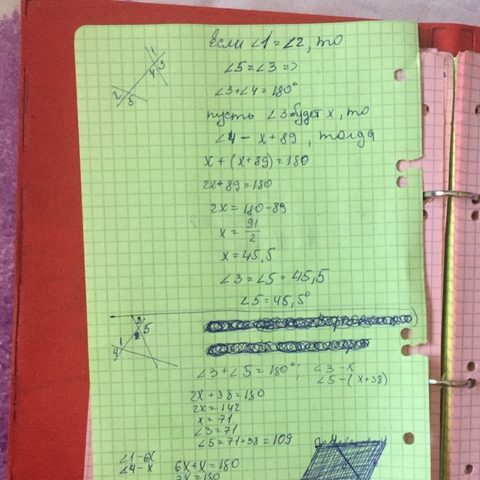 Если ∠1=∠2, то
∠5=∠3 =>
∠3+∠4=180°
пусть ∠3 будет x, то
∠4 - x+89, тогда
x+(x+89)=180
2x+89=180
2x=180-89
x=91/2
x=45,5
∠3=∠5=45,5
∠5=45,5°
1
4 3
2
5
∠3+∠5=180°; ∠3-x
∠5-(x+38)
2x+38=180
2x=142
x=71
∠3=71
∠5=71+38=109
5
1
∠1-6x
∠4-x
6x+x=180
7x=180